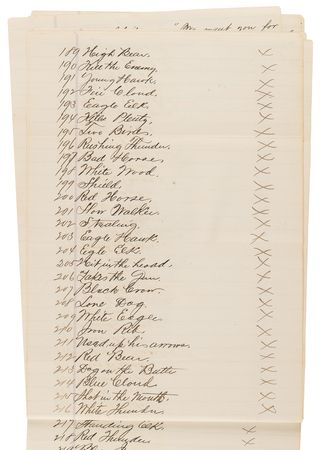 you for
189 High Bear. X
190 Kill the Enemy. X
191 Young Hawk. X
192 Fire Cloud. X
193 Eagle Elk. X
194 Kills Plenty. X
195 Two Bears. X
196 Rushing Thunder. X
197 Bad Horse. X
198 White Wood. X
199 Shield. X
200 Red Horse. X
201 Slow Walker. X
202 Stealing. X
203 Eagle Hawk. X
204 Egle Elk. X
205 Hit in the head. X
206 Takes the Gun. X
207 Black Crow. X
208 Lone Dog. X
209 White Eagle X
210 Iron Rib. X
211 Used up his arrows. X
212 Red Bear. X
213 Dog on the Butte X
214 Blue Cloud X
215 Shot in the Mouth. X
216 White Thunder X
217 Standing Elk X
218 Red Thunder X
219